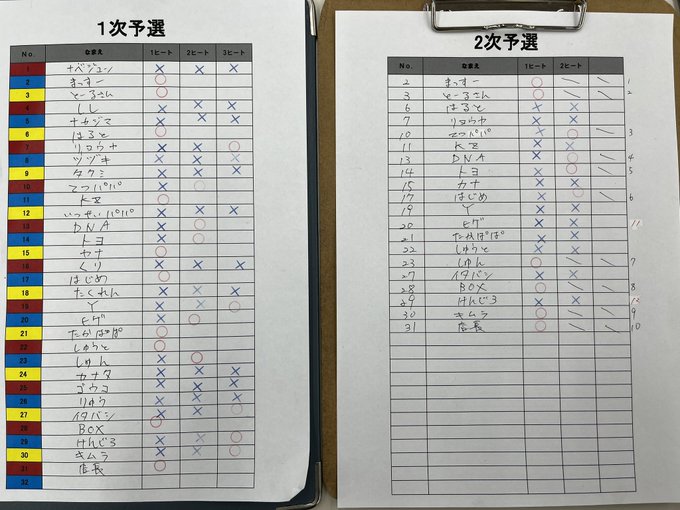 1次予選
No. なまえ 1ヒート 2ヒート 3ヒート
1 ナベジュン × × ×
2 まっすー ○
3 とーるさん ○
4 しし × × ×
5 ナカジマ × × ×
6 はると ○
7 リョウヤ × × ○
8 ツヅキ × × ×
9 タクミ × × ×
10 てつパパ × ○
11 ○
12 いっせいパパ × × ×
13 DNA × ○
14 トヨ × ○
15 カナ ○
16 くり × × ×
17 はじめ ○
18 たくれん × × ×
19 Y × × ○
20 ヒゲ × ○
21 たかぱぱ ○
22 しゅうと ○
23 しゅん × ○
24 カナタ × × ×
25 ゴウコ × × ×
26 りゅう × × ×
27 イタバシ × × ○
28 BOX ○
29 けんじろ × × ○
30 キムラ × × ○
31 店長 ○
32
2次予選
No. なまえ 1ヒート 2ヒート
2 まっすー ○ \ \ 1
3 とーるさん ○ \ \ 2
6 はると × ×
7 リョウヤ × ×
10 てつパパ × ○ \ 3
11 × ×
13 DNA × ○ \ 4
14 トヨ × ○ \ 5
15 カナ × ×
17 はじめ × ○ \ 6
19 Y × ×
20 ヒゲ × × 11
21 たかぱぱ × ×
22 しゅうと × ×
23 しゅん ○ \ \ 7
27 イタバシ × ×
28 BOX ○ \ \ 8
29 けんじろ × ×
30 キムラ ○ \ \ 9
31 店長 ○ \ \ 10